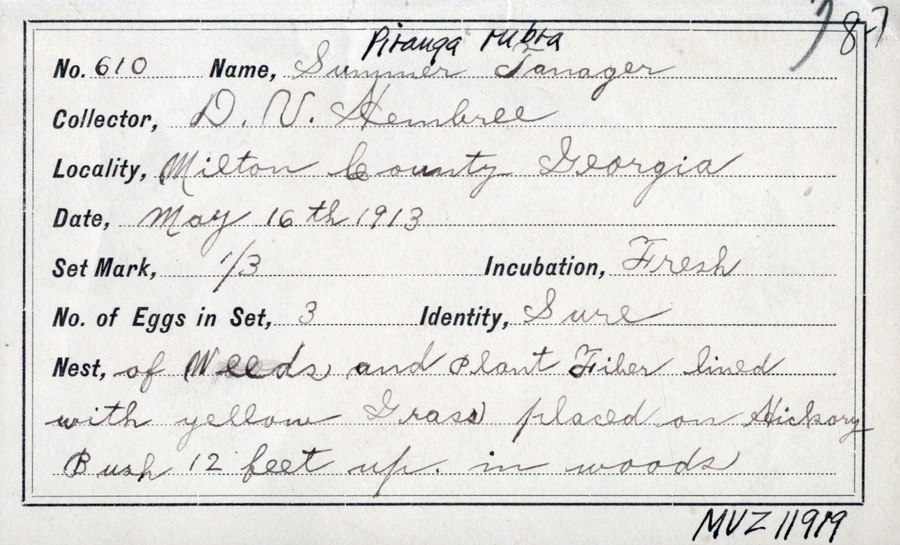 8-7
Piranga rubra
No. 610 Name, Summer Tanager
Collector, D. V. Hembree
Locality, Milton County Georgia
Date, May 16th 1913
Set Mark, 1/3 Incubation, Fresh
No. of Eggs in Set, 3 Identity, Sure
Nest, of Weeds and Plant Fiber lined
with yellow Grass placed on Hickory
Bush 12 feet up. in woods
MVZ 11919